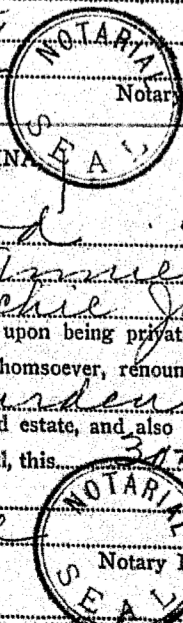 NOTARIAL
Notary
SEAL
INA
d
Annie
chie
upon being privat
homsoever, renoun
urden
d estate, and also
l, this 3rd
NOTARIAL
Notary
SEAL